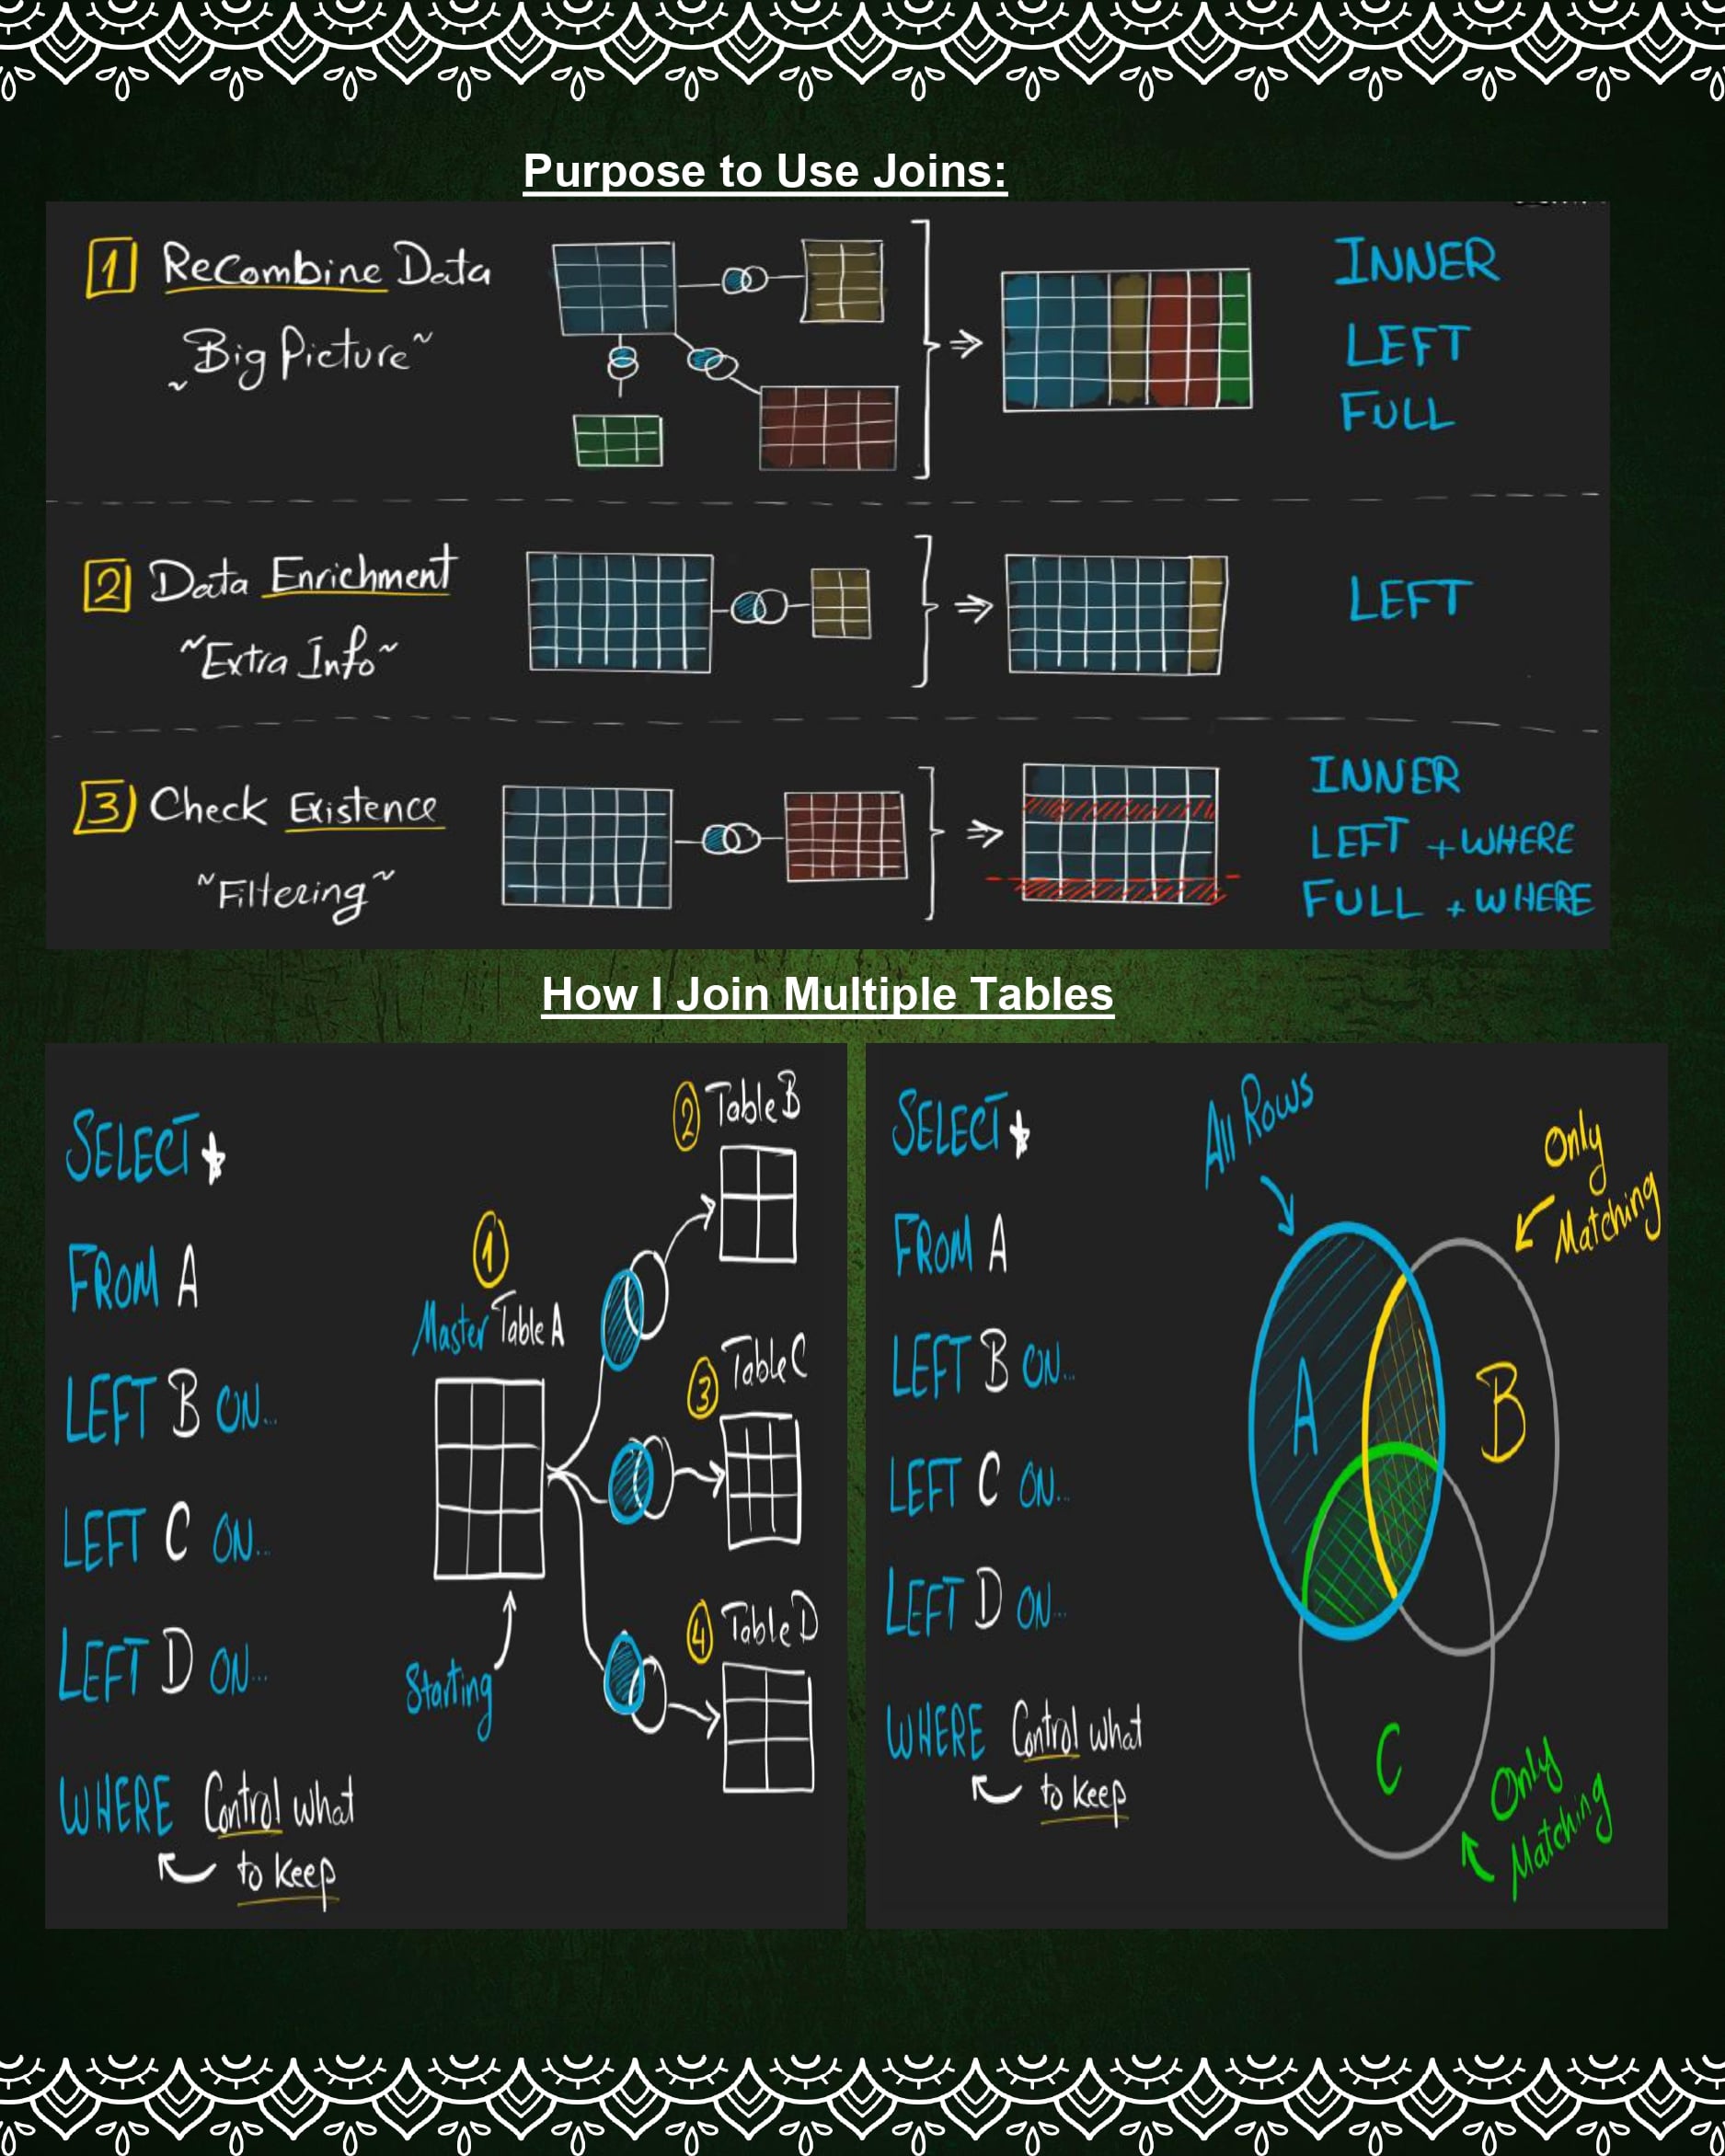 Purpose to Use Joins:
1 ReCombine Data
~Big Picture~
INNER
LEFT
FULL
2 Data Enrichment
~Extra Info~
LEFT
3 Check Existence
~Filtering~
INNER
LEFT + WHERE
FULL + WHERE
How I Join Multiple Tables
SELECT *
FROM A
LEFT B ON..
LEFT C ON..
LEFT D ON...
WHERE Control what
to keep
1
Master Table A
Starting
2 Table B
3 Table C
4 Table D
SELECT *
FROM A
LEFT B ON...
LEFT C ON...
LEFT D ON...
WHERE Control what
to keep
All Rows
Only
Matching
A
B
C
Only
Matching